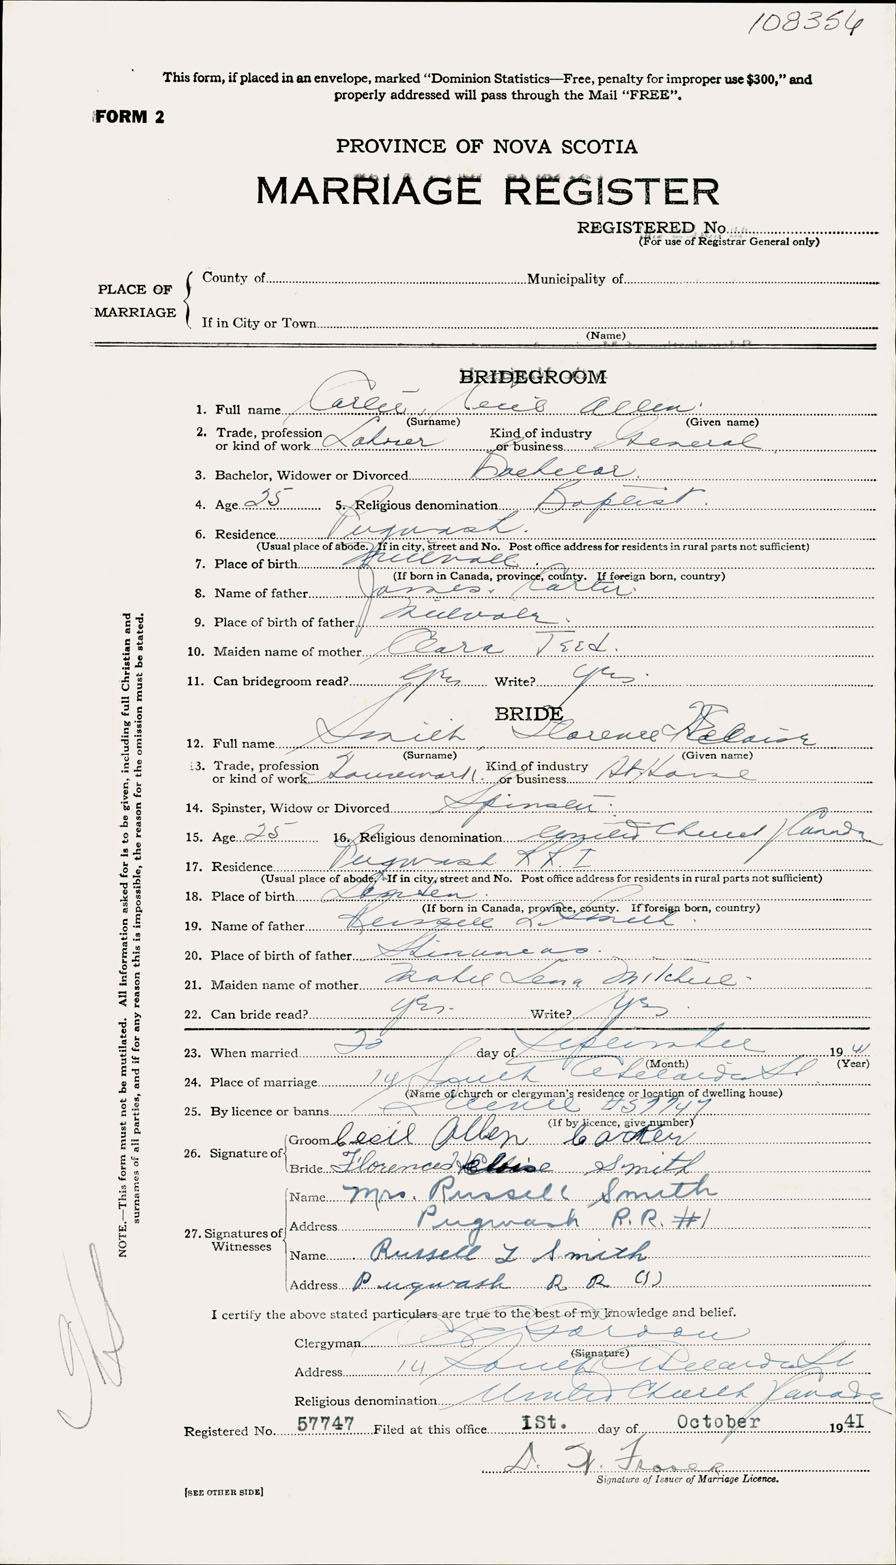 108354
This form, if placed in an envelope, marked “Dominion Statistics—Free, penalty for improper use $300,” and
properly addressed will pass through the Mail “FREE”.
FORM 2
PROVINCE OF NOVA SCOTIA
MARRIAGE REGISTER
REGISTERED No
(For use of Registrar General only)
PLACE OF MARRIAGE
County of Municipality of
If in City or Town
(Name)
BRIDEGROOM
1. Full name Carter, Cecil Allen
(Surname) (Given name)
2. Trade, profession or kind of work Laborer Kind of industry or business General
3. Bachelor, Widower or Divorced Bachelor
4. Age 25 5. Religious denomination Baptist
6. Residence Pugwash
(Usual place of abode. If in city, street and No. Post office address for residents in rural parts not sufficient)
7. Place of birth Millvale
(If born in Canada, province, county. If foreign born, country)
8. Name of father James Carter
9. Place of birth of father Millvale
10. Maiden name of mother Clara Teed
11. Can bridegroom read? Yes Write? Yes
BRIDE
12. Full name Smith Florence
(Surname) (Given name)
13. Trade, profession or kind of work Housework Kind of industry or business At Home
14. Spinster, Widow or Divorced Spinster
15. Age 25 16. Religious denomination United Church / Canada
17. Residence Pugwash R.R. 1
(Usual place of abode. If in city, street and No. Post office address for residents in rural parts not sufficient)
18. Place of birth
(If born in Canada, province, county. If foreign born, country)
19. Name of father Russell L Smith
20. Place of birth of father
21. Maiden name of mother Mabel Lena Mitchell
22. Can bride read? Yes Write? Yes
23. When married 20 day of September 1941
(Month) (Year)
24. Place of marriage 14 South St
(Name of church or clergyman's residence or location of dwelling house)
25. By licence or banns License 57747
(If by licence, give number)
26. Signature of
Groom Cecil Allen Carter
Bride Florence Smith
27. Signatures of Witnesses
Name Mrs. Russell Smith
Address Pugwash R.R. #1
Name Russell L Smith
Address Pugwash R R (1)
I certify the above stated particulars are true to the best of my knowledge and belief.
Clergyman Gordon
(Signature)
Address 14 South St
Religious denomination United Church / Canada
Registered No. 57747 Filed at this office 1St. day of October 1941
Fraser
Signature of Issuer of Marriage Licence.
[SEE OTHER SIDE]
NOTE.—This form must not be mutilated. All Information asked for is to be given, including full Christian and
surnames of all parties, and if for any reason this is impossible, the reason for the omission must be stated.